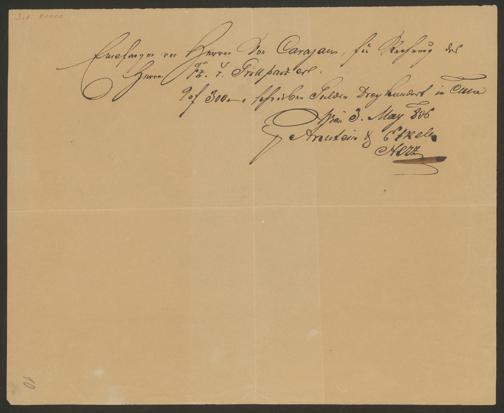 Empfangen von Herrn von Carajan, für Rechnung des
Herrn Fz. v. Grillparzer.
300 schreibe Gulden Dreyhundert in
Wien 3. May 806
Arnstein & Eskeles
Herz
10